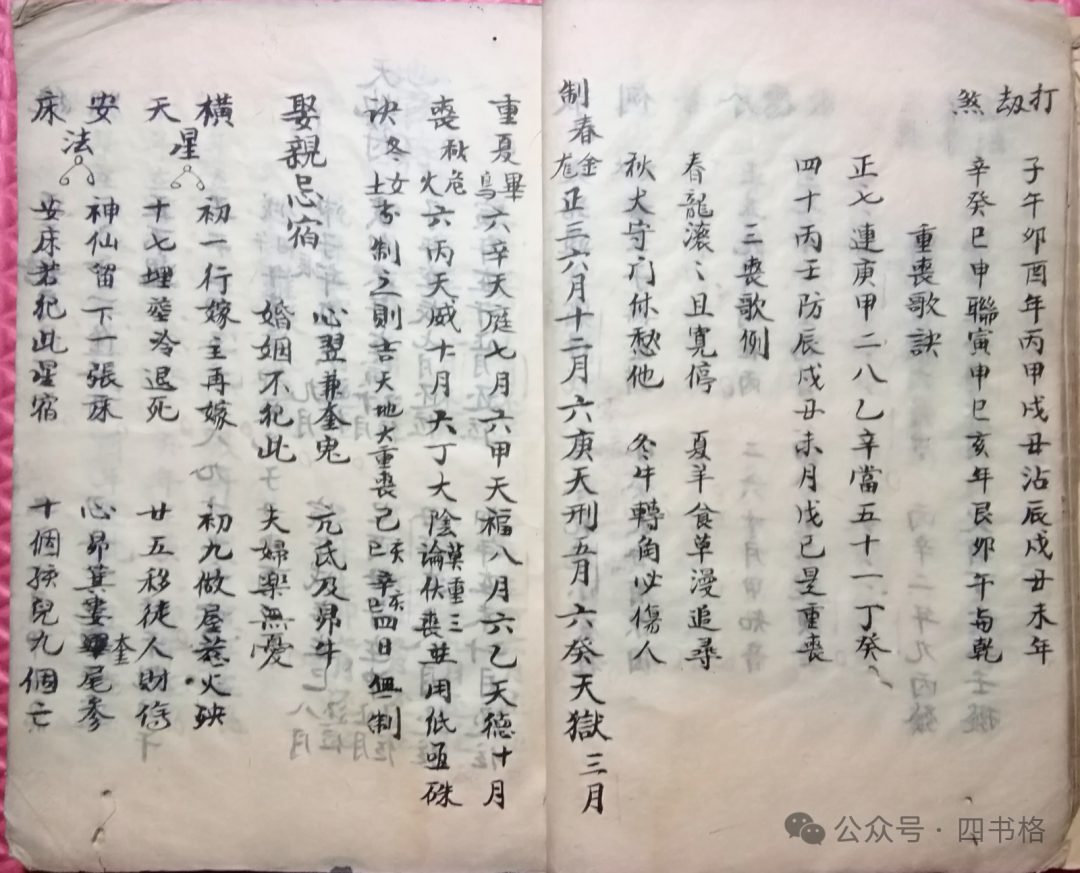 打劫煞
子午卯酉年丙甲戌丑沾辰戌丑未年
辛癸巳申聯寅申巳亥年艮卯午与乾
重喪歌訣
正七連庚甲二八乙辛當五十一丁癸
四十丙壬防辰戌丑未月戊己是重喪
三喪歌例
春龍滚〻且寛停 夏羊食草漫追尋
秋犬守门休愁他 冬牛轉角必傷人
制春金
正三六月十二月六庚天刑五月六癸天獄三月
重夏畢
六辛天庭七月六甲天福八月六乙天德十月
喪秋危
火六丙天威十月六丁大陰莫重三論伏喪並用纸 硃
诀冬女
土 制之則吉天地大重喪己亥己巳辛亥辛巳四日 制
娶親忌宿
心翌兼奎鬼 亢氐及昴牛
婚姻不犯此 夫婦樂無憂
橫天星
初一行嫁主再嫁 初九做屋惹火殃
十七埋塟冷退死 廿五移徒人財傷
安床法
神仙留下一張床 心昴箕婁奎尾参
安床若犯此星宿 十個孩兒九個亡
公众号 · 四书格